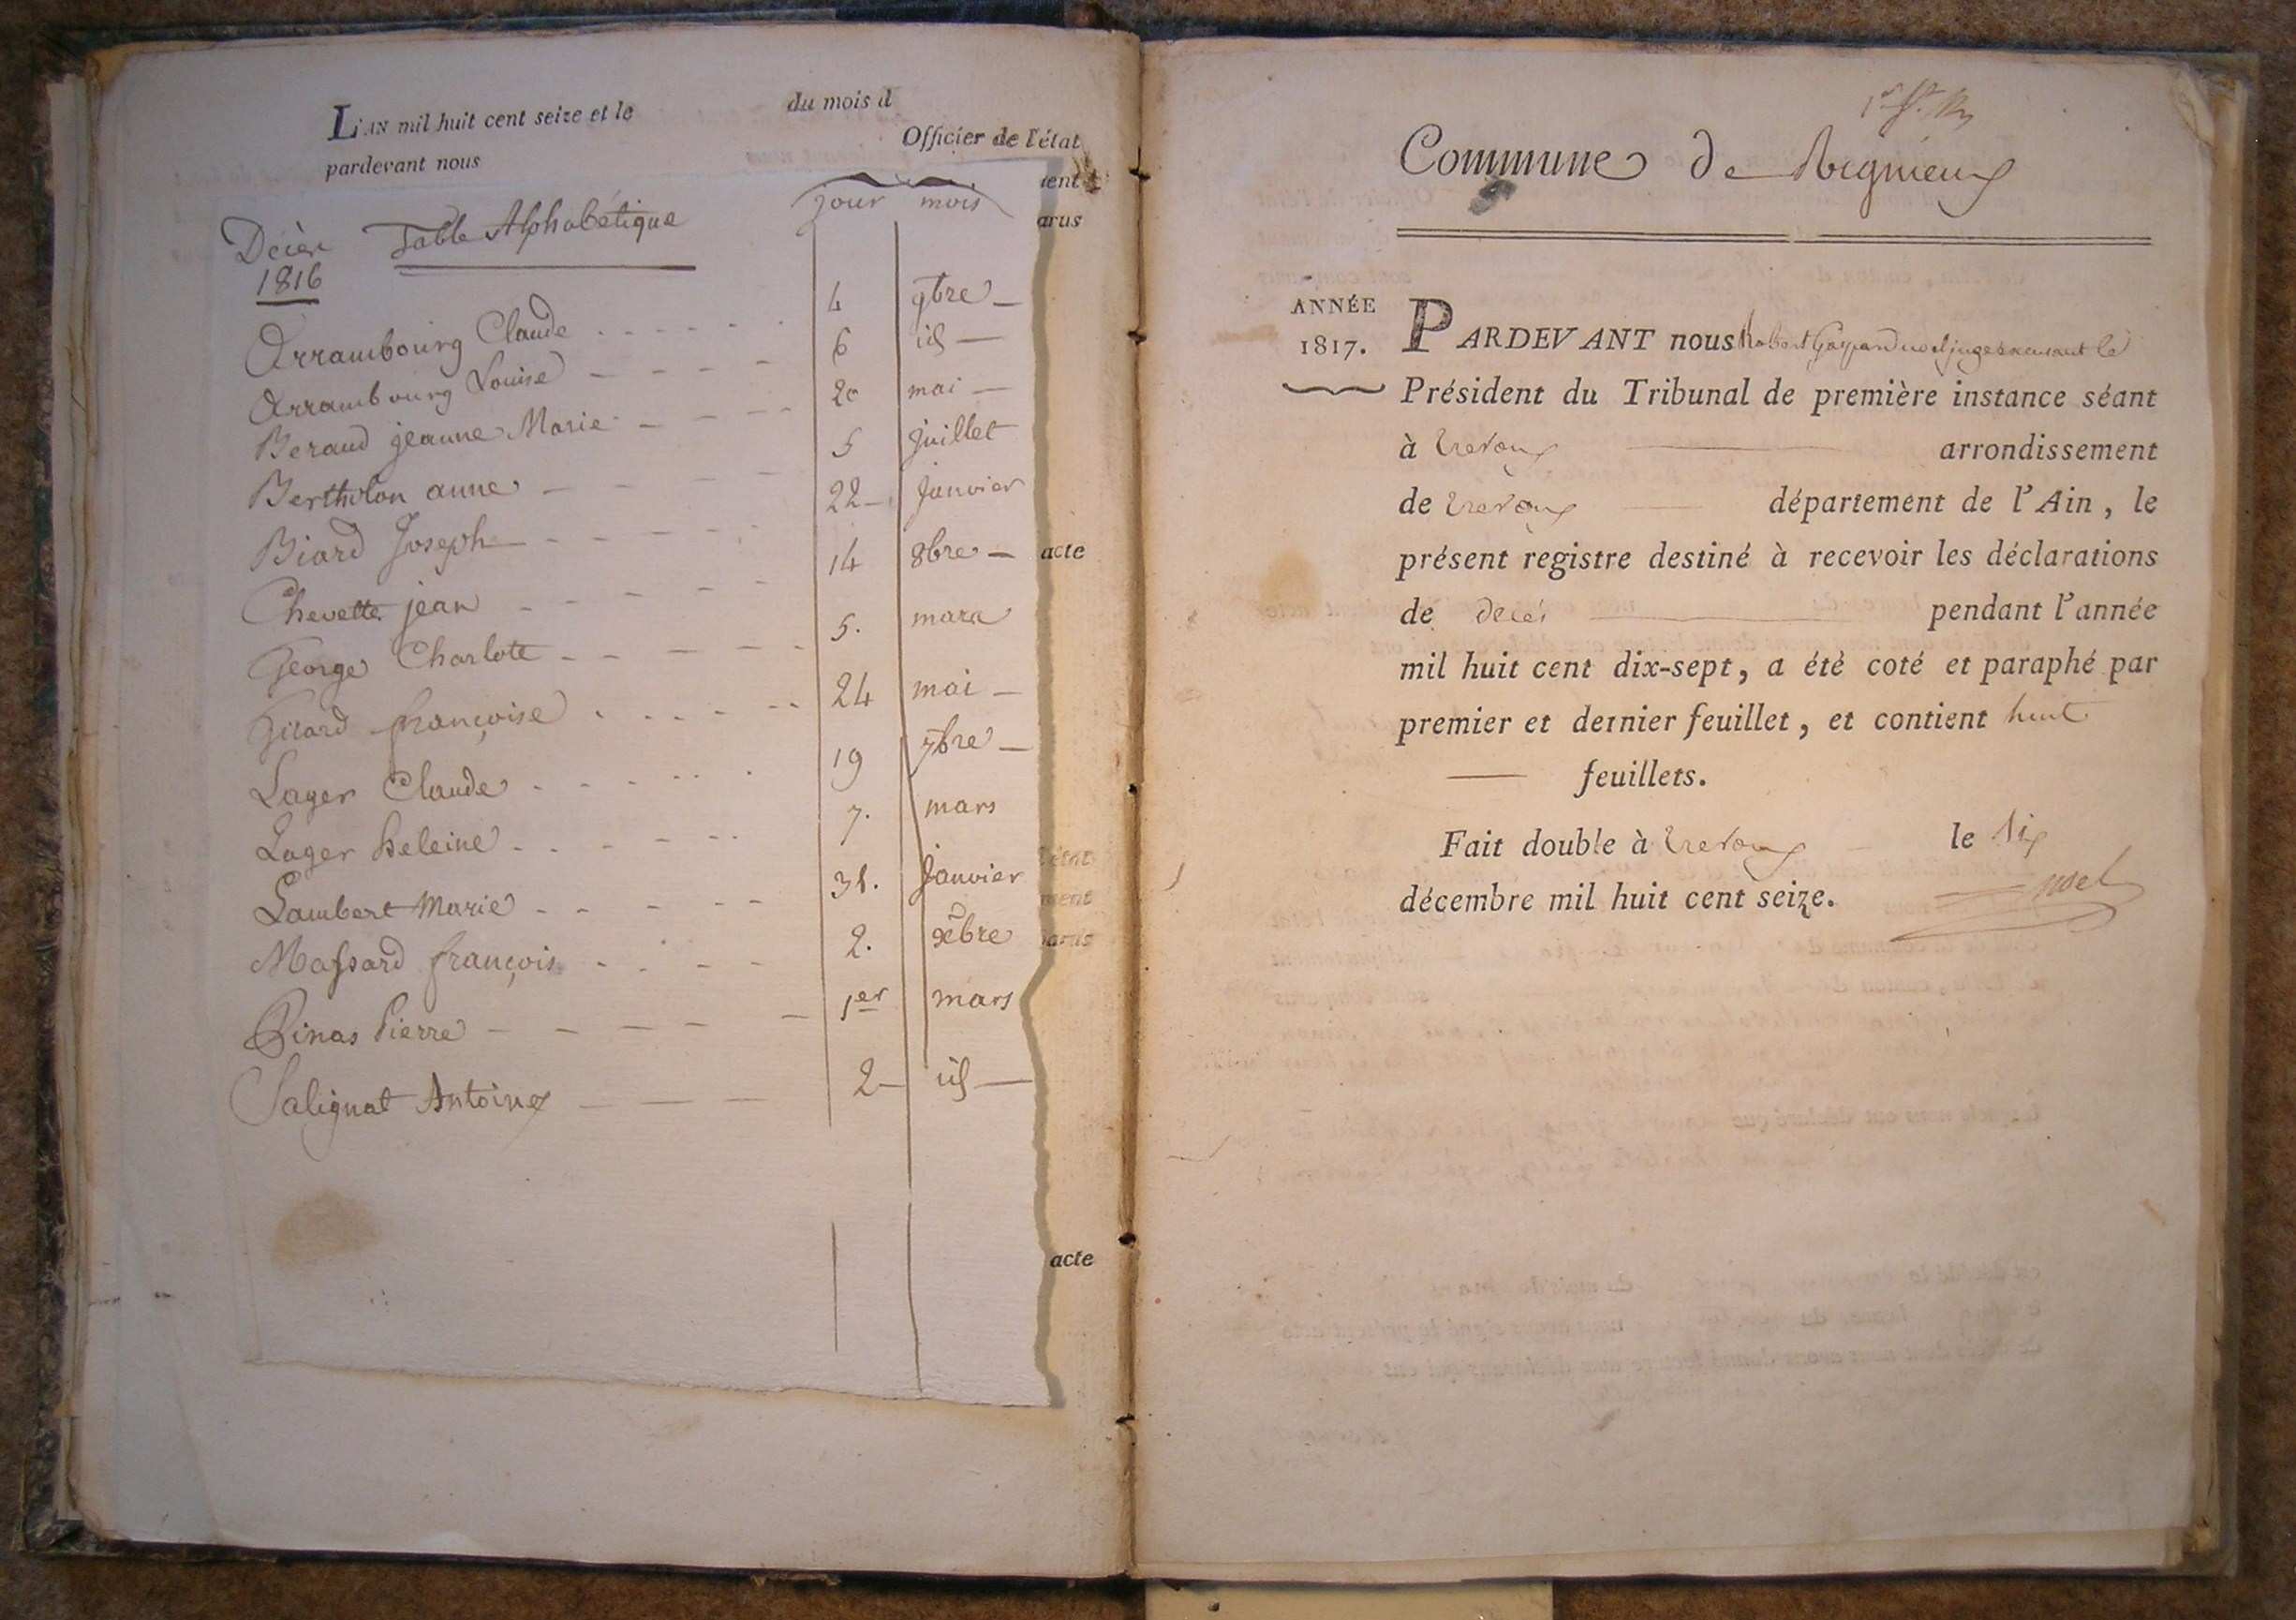 L'AN mil huit cent seize et le du mois d
pardevant nous Officier de l'état
ent
arus
jour mois
Décès Table Alphabétique
1816
Arrambourg Claude 4 9bre
Arrambourg Louise 6 id
Beraud jeanne Marie 20 mai
Bertholon anne 5 juillet
Biard Joseph 22 Janvier
Chevette jean 14 8bre
acte
George Charlote 5. mars
Girard françoise 24 mai
Lager Claude 19 7bre
Lager heleine 7. mars
Lambert Marie 31. Janvier
Massard françois 2. Xbre
Pinas Pierre 1er mars
Salignat Antoine 2 id
l'état
ment
arus
acte
Commune de Rignieux
ANNÉE
1817.
PARDEVANT nous Robert Gaspard noel juge exerçant le
Président du Tribunal de première instance séant
à trevoux arrondissement
de trevoux département de l'Ain, le
présent registre destiné à recevoir les déclarations
de décés pendant l'année
mil huit cent dix-sept, a été coté et paraphé par
premier et dernier feuillet, et contient huit
feuillets.
Fait double à trevoux le six
décembre mil huit cent seize.
noel